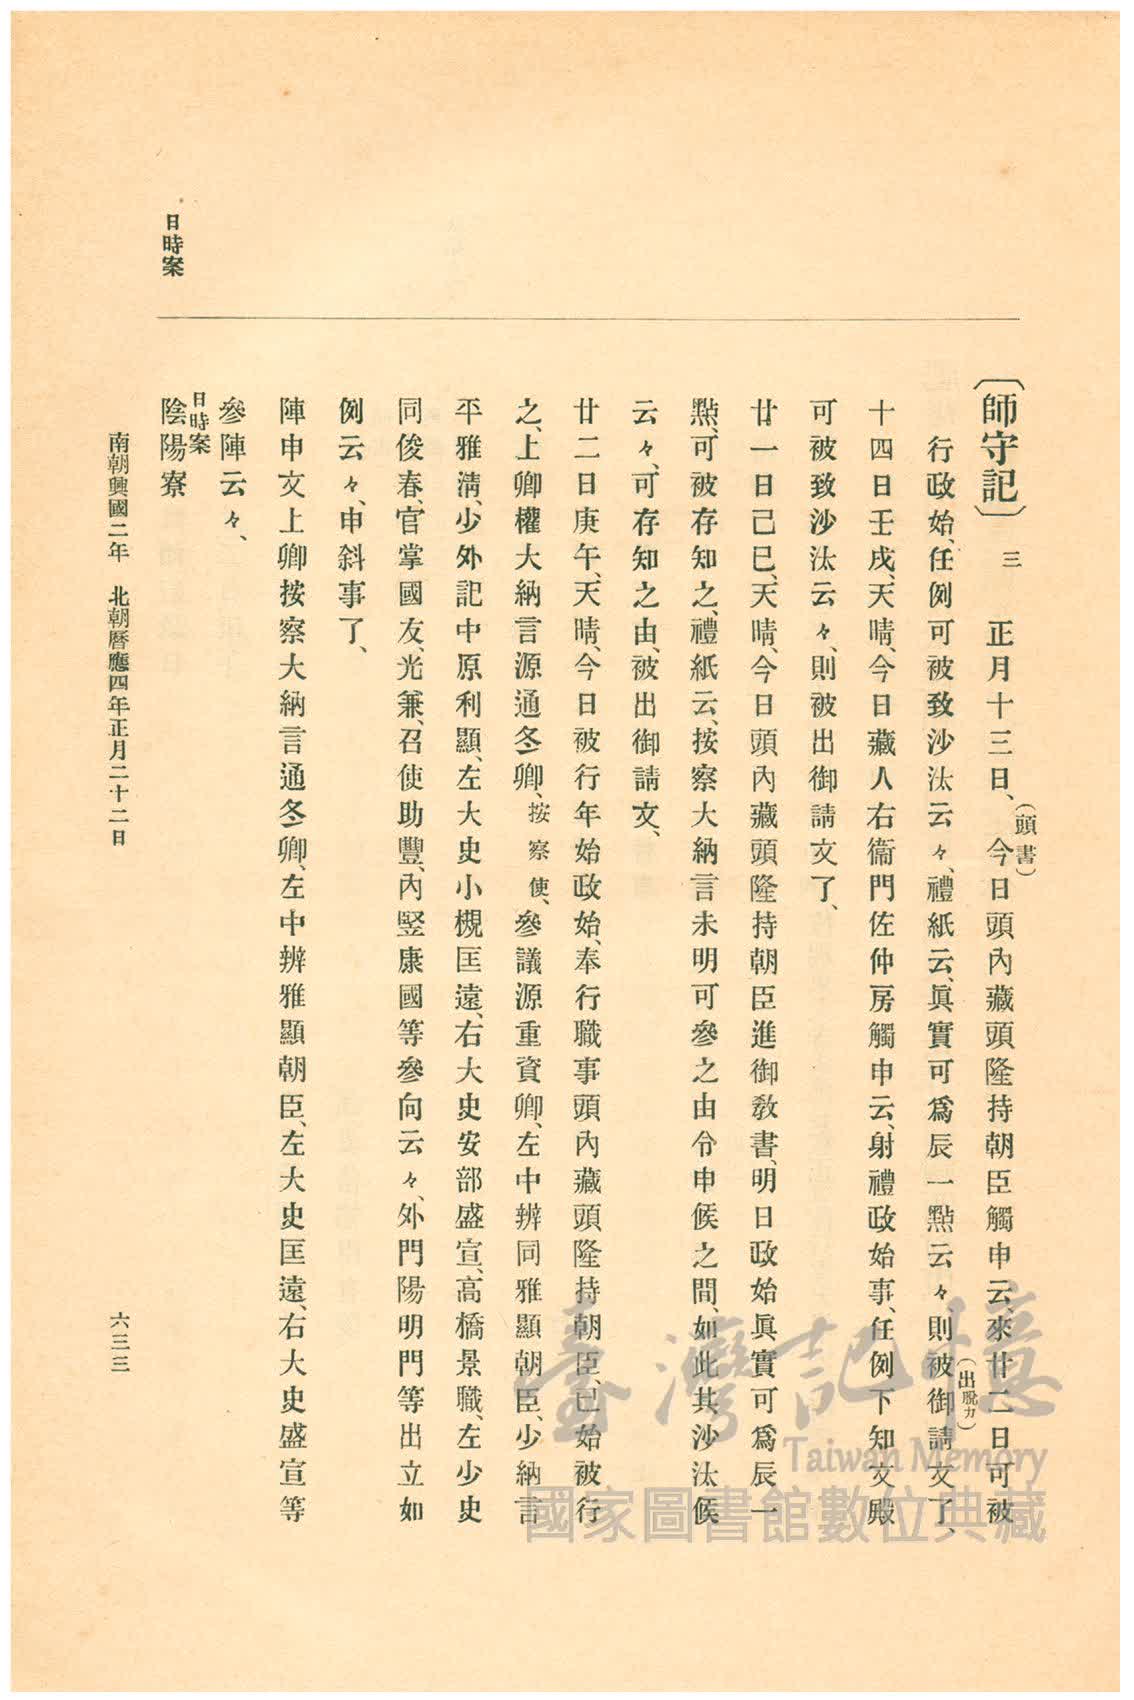 日時案
〔師守記〕 三 正月十三日、(頭書)今日頭內藏頭隆持朝臣觸申云、來廿二日可被
行政始、任例可被致沙汰云々、禮紙云、眞實可爲辰一點云々、則被(出脱カ)御請文了、
十四日壬戌、天晴、今日藏人右衞門佐仲房觸申云、射禮政始事、任例下知文殿
可被致沙汰云々、則被出御請文了、
廿一日己巳、天晴、今日頭內藏頭隆持朝臣進御敎書、明日政始眞實可爲辰一
點、可被存知之、禮紙云、按察大納言未明可參之由令申候之間、如此其沙汰候
云々、可存知之由、被出御請文、
廿二日庚午、天晴、今日被行年始政始、奉行職事頭內藏頭隆持朝臣、已始被行
之、上卿權大納言源通冬卿、按察使、參議源重資卿、左中辨同雅顯朝臣、少納言
平雅淸、少外記中原利顯、左大史小槻匡遠、右大史安部盛宣、高橋景職、左少史
同俊春、官掌國友、光兼、召使助豐、內竪康國等參向云々、外門陽明門等出立如
例云々、申斜事了、
陣申文上卿按察大納言通冬卿、左中辨雅顯朝臣、左大史匡遠、右大史盛宣等
參陣云々、
日時案
陰陽寮
南朝興國二年 北朝曆應四年正月二十二日
六三三
臺灣記憶
Taiwan Memory
國家圖書館數位典藏